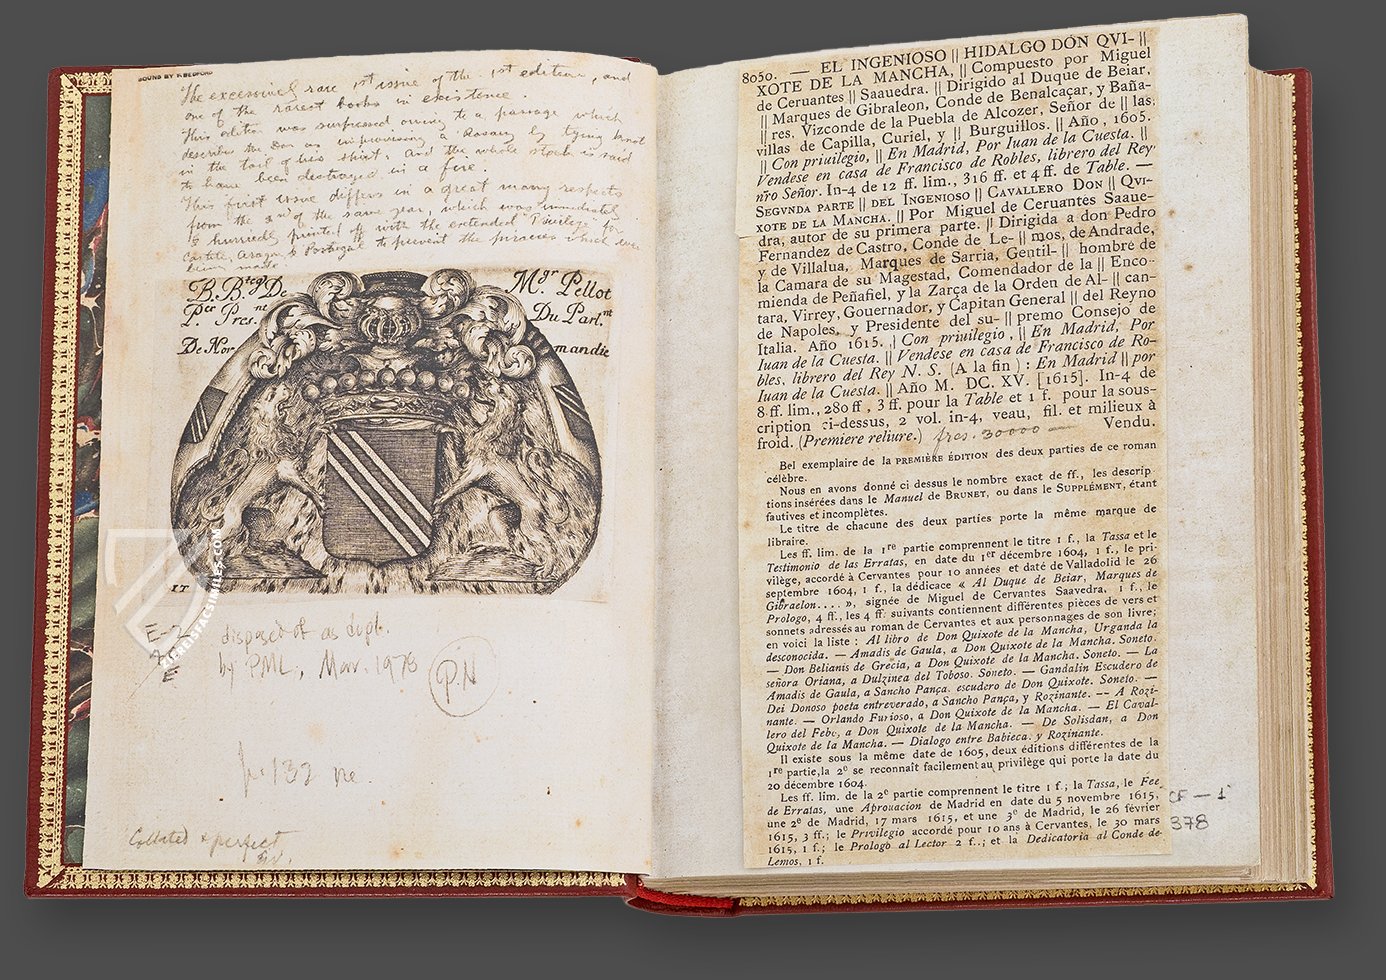 BOUND BY F. BEDFORD
The excessively rare 1st issue of the 1st edition, and
one of the rarest books in existence.
This edition was surpressed owing to a passage which
describes the Don as improvising a Rosary by tying knots
in the tail of his shirt, and the whole stock is said
to have been destroyed in a fire.
This first issue differs in a great many respects
from the 2nd of the same year, which was immediately
& hurriedly printed off with the extended Privilege for
Castile, Aragon & Portugal to prevent the piracies which were
being made
B. Bteq. De Mgr Pellot
Per Pres.nt Du Parl.nt
De Nor mandie
IT
FACSIMILES.COM
E-2
E
disposed of as dupl.
by PML, Mar. 1978
P.N
p. 132 ne.
Collated & perfect
8050. — EL INGENIOSO || HIDALGO DON QVI- ||
XOTE DE LA MANCHA, || Compuesto por Miguel
de Ceruantes || Saauedra. || Dirigido al Duque de Beiar,
|| Marques de Gibraleon, Conde de Benalcaçar, y Baña-
|| res, Vizconde de la Puebla de Alcozer, Señor de || las
villas de Capilla, Curiel, y || Burguillos. || Año, 1605.
|| Con priuilegio, || En Madrid, Por Iuan de la Cuesta. ||
Vendese en casa de Francisco de Robles, librero del Rey
nro Señor. In-4 de 12 ff. lim., 316 ff. et 4 ff. de Table. —
SEGVNDA PARTE || DEL INGENIOSO || CAVALLERO DON || QVI-
XOTE DE LA MANCHA. || Por Miguel de Ceruantes Saaue-
dra, autor de su primera parte. || Dirigida a don Pedro
Fernandez de Castro, Conde de Le- || mos, de Andrade,
y de Villalua, Marques de Sarria, Gentil- || hombre de
la Camara de su Magestad, Comendador de la || Enco-
mienda de Peñafiel, y la Zarça de la Orden de Al- || can-
tara, Virrey, Gouernador, y Capitan General || del Reyno
de Napoles, y Presidente del su- || premo Consejo de
Italia. Año 1615. || Con priuilegio, || En Madrid, Por
Iuan de la Cuesta. || Vendese en casa de Francisco de Ro-
bles, librero del Rey N. S. (A la fin) : En Madrid || por
Iuan de la Cuesta. || Año M. DC. XV. [1615]. In-4 de
8 ff. lim., 280 ff, 3 ff. pour la Table et 1 f. pour la sous-
cription ci-dessus, 2 vol. in-4, veau, fil. et milieux à
froid. (Premiere reliure.) frcs. 30000 Vendu.
Bel exemplaire de la PREMIÈRE ÉDITION des deux parties de ce roman
célèbre.
Nous en avons donné ci dessus le nombre exact de ff., les descrip-
tions insérées dans le Manuel de BRUNET, ou dans le SUPPLÉMENT, étant
fautives et incomplètes.
Le titre de chacune des deux parties porte la même marque de
libraire.
Les ff. lim. de la 1re partie comprennent le titre 1 f., la Tassa et le
Testimonio de las Erratas, en date du 1er décembre 1604, 1 f., le pri-
vilège, accordé à Cervantes pour 10 années et daté de Valladolid le 26
septembre 1604, 1 f., la dédicace « Al Duque de Beiar, Marques de
Gibraelon.... », signée de Miguel de Cervantes Saavedra, 1 f., le
Prologo, 4 ff., les 4 ff. suivants contiennent différentes pièces de vers et
sonnets adressés au roman de Cervantes et aux personnages de son livre;
en voici la liste : Al libro de Don Quixote de la Mancha, Urganda la
desconocida. — Amadis de Gaula, a Don Quixote de la Mancha. Soneto.
— Don Belianis de Grecia, a Don Quixote de la Mancha. Soneto. — La
señora Oriana, a Dulzinea del Toboso. Soneto. — Gandalin Escudero de
Amadis de Gaula, a Sancho Pança, escudero de Don Quixote. Soneto. —
Dei Donoso poeta entreverado, a Sancho Pança, y Rozinante. — A Rozi-
nante. — Orlando Furioso, a Don Quixote de la Mancha. — El Caval-
lero del Febo, a Don Quixote de la Mancha. — De Solisdan, a Don
Quixote de la Mancha. — Dialogo entre Babieca, y Rozinante.
Il existe sous la même date de 1605, deux éditions différentes de la
1re partie, la 2e se reconnaît facilement au privilège qui porte la date du
20 décembre 1604.
Les ff. lim. de la 2e partie comprennent le titre 1 f.; la Tassa, le Fee
de Erratas, une Aprouacion de Madrid en date du 5 novembre 1615,
une 2e de Madrid, 17 mars 1615, et une 3e de Madrid, le 26 février
1615, 3 ff.; le Privilegio accordé pour 10 ans à Cervantes, le 30 mars
1615, 1 f.; le Prologo al Lector 2 f..; et la Dedicatoria al Conde de
Lemos, 1 f.
CF — 1
378